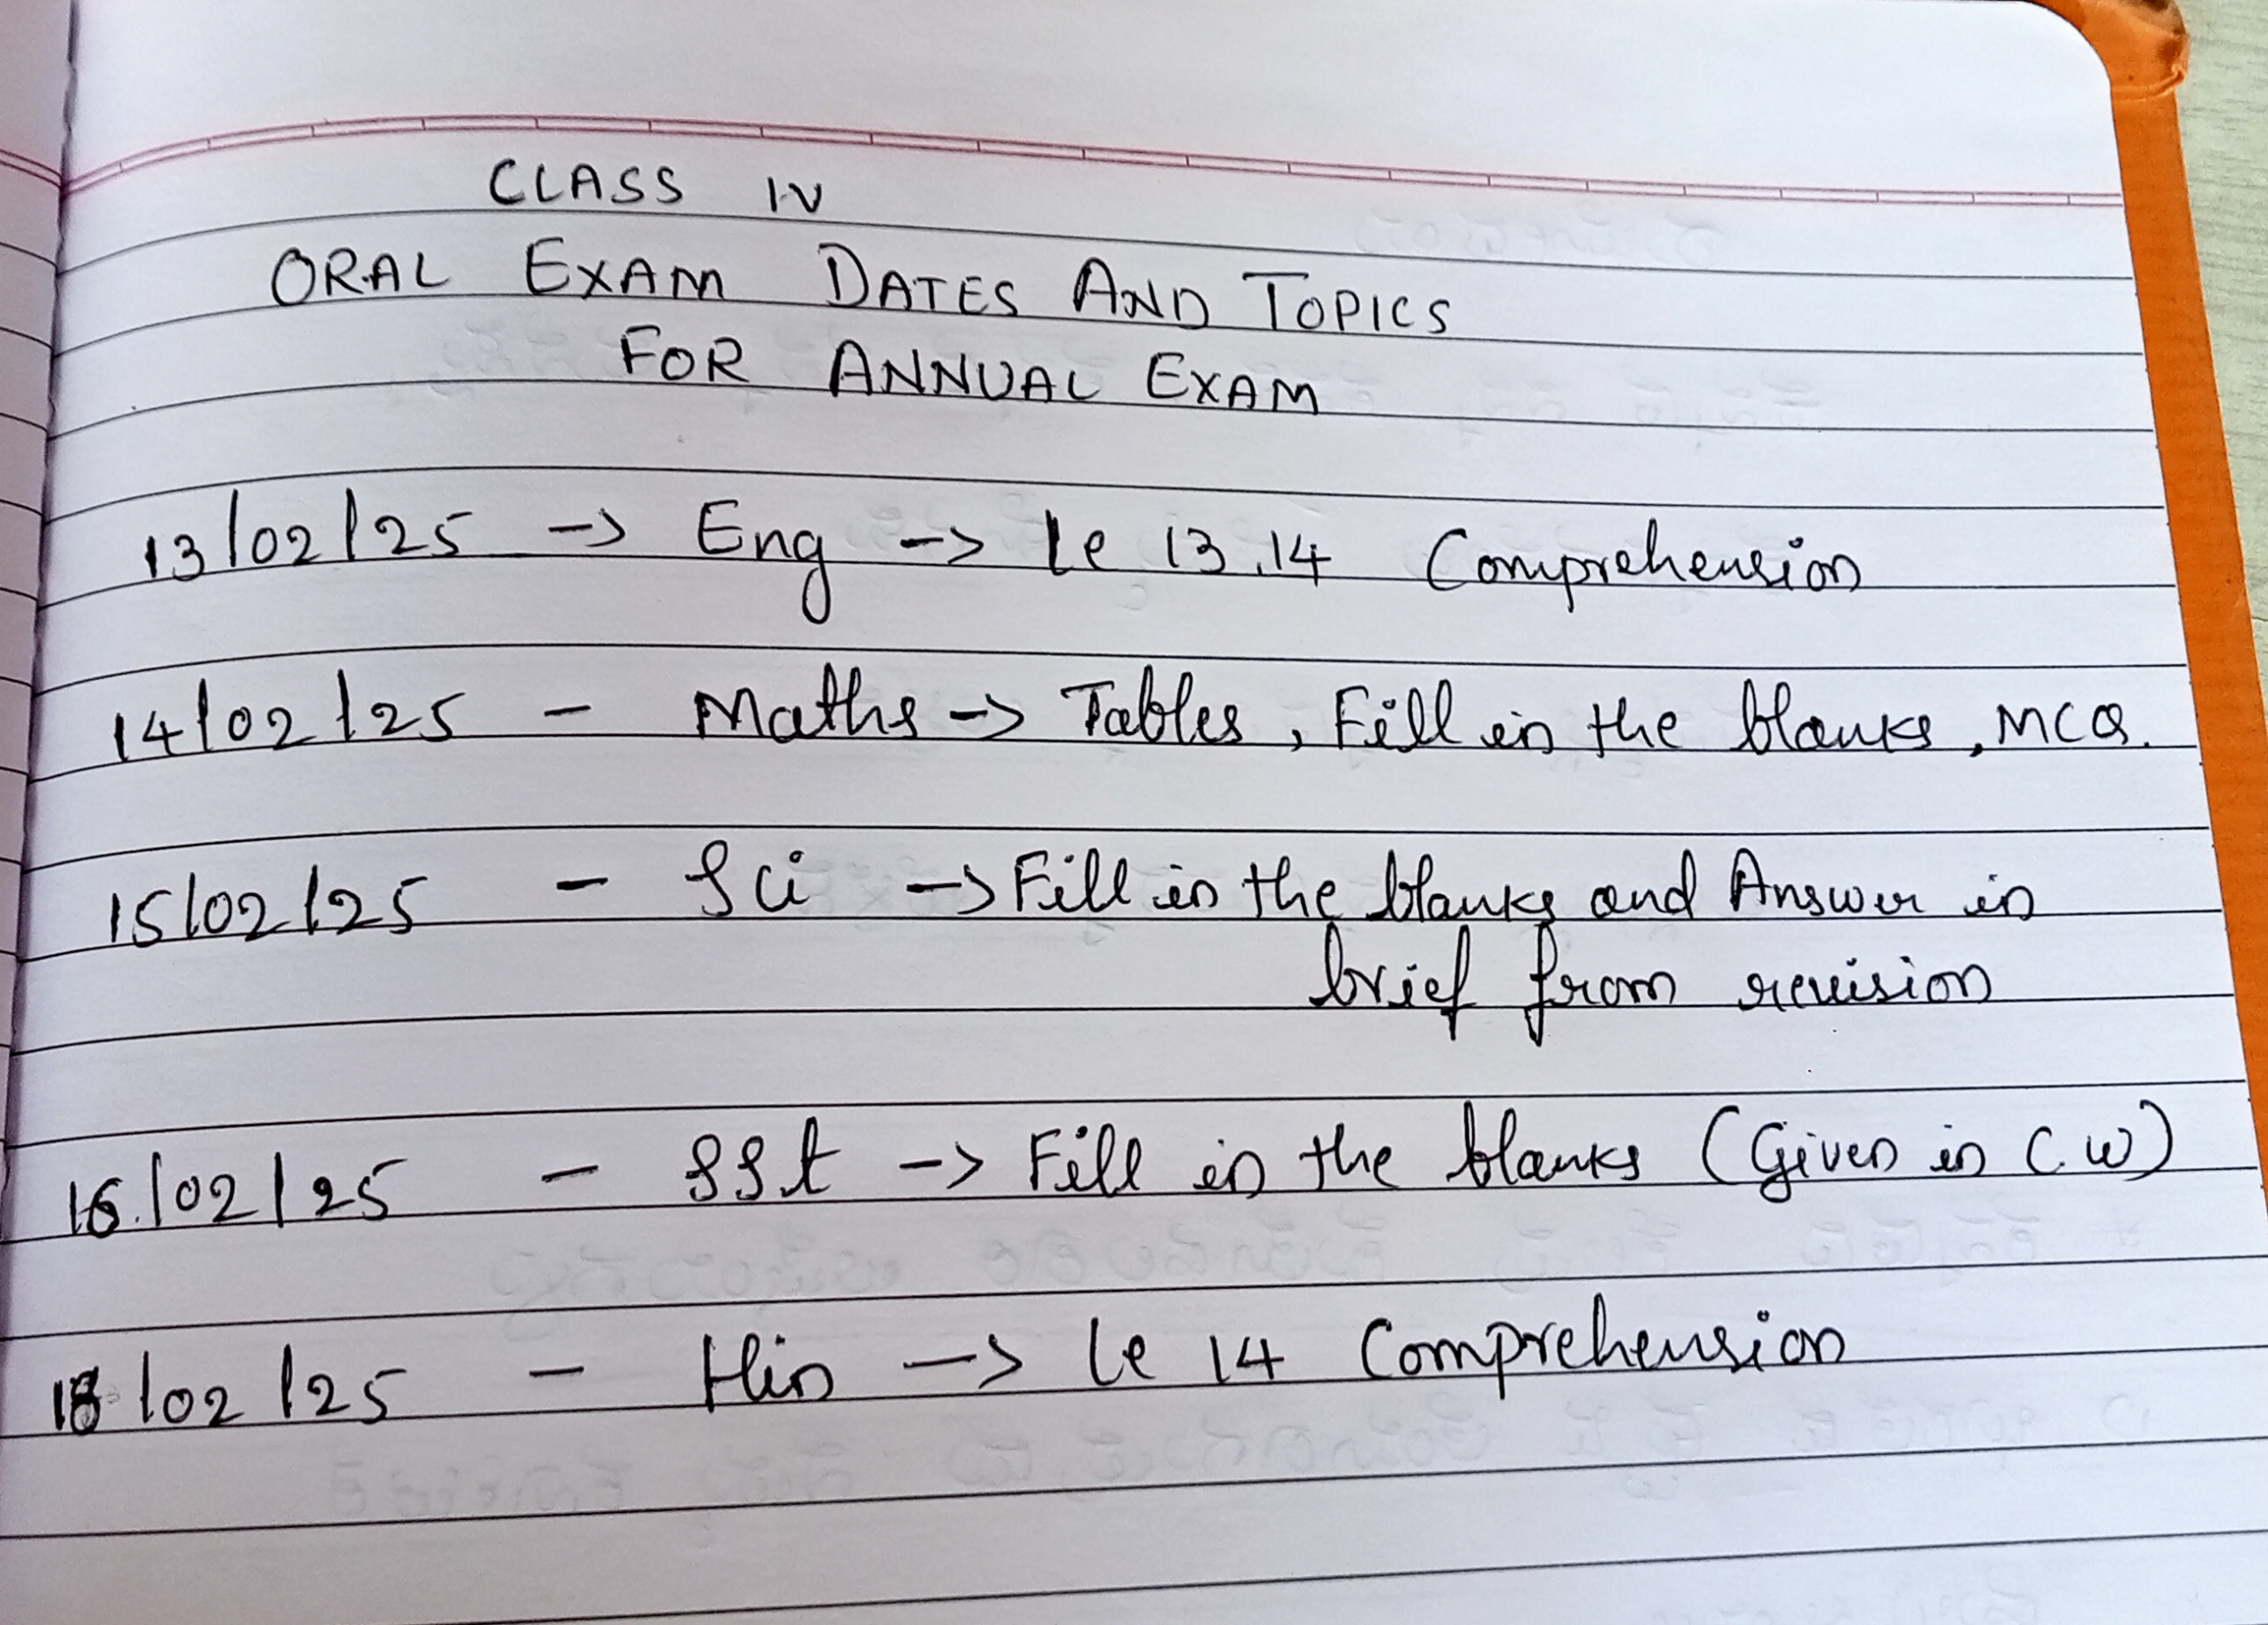 CLASS IV
ORAL EXAM DATES AND TOPICS
FOR ANNUAL EXAM
13/02/25 -> Eng -> Le 13,14 Comprehension
14/02/25 - Maths -> Tables, Fill in the blanks, MCQ.
15/02/25 - Sci -> Fill in the blanks and Answer in
brief from revision
16/02/25 - SSt -> Fill in the blanks (Given in C.W)
18/02/25 - Hin -> Le 14 Comprehension